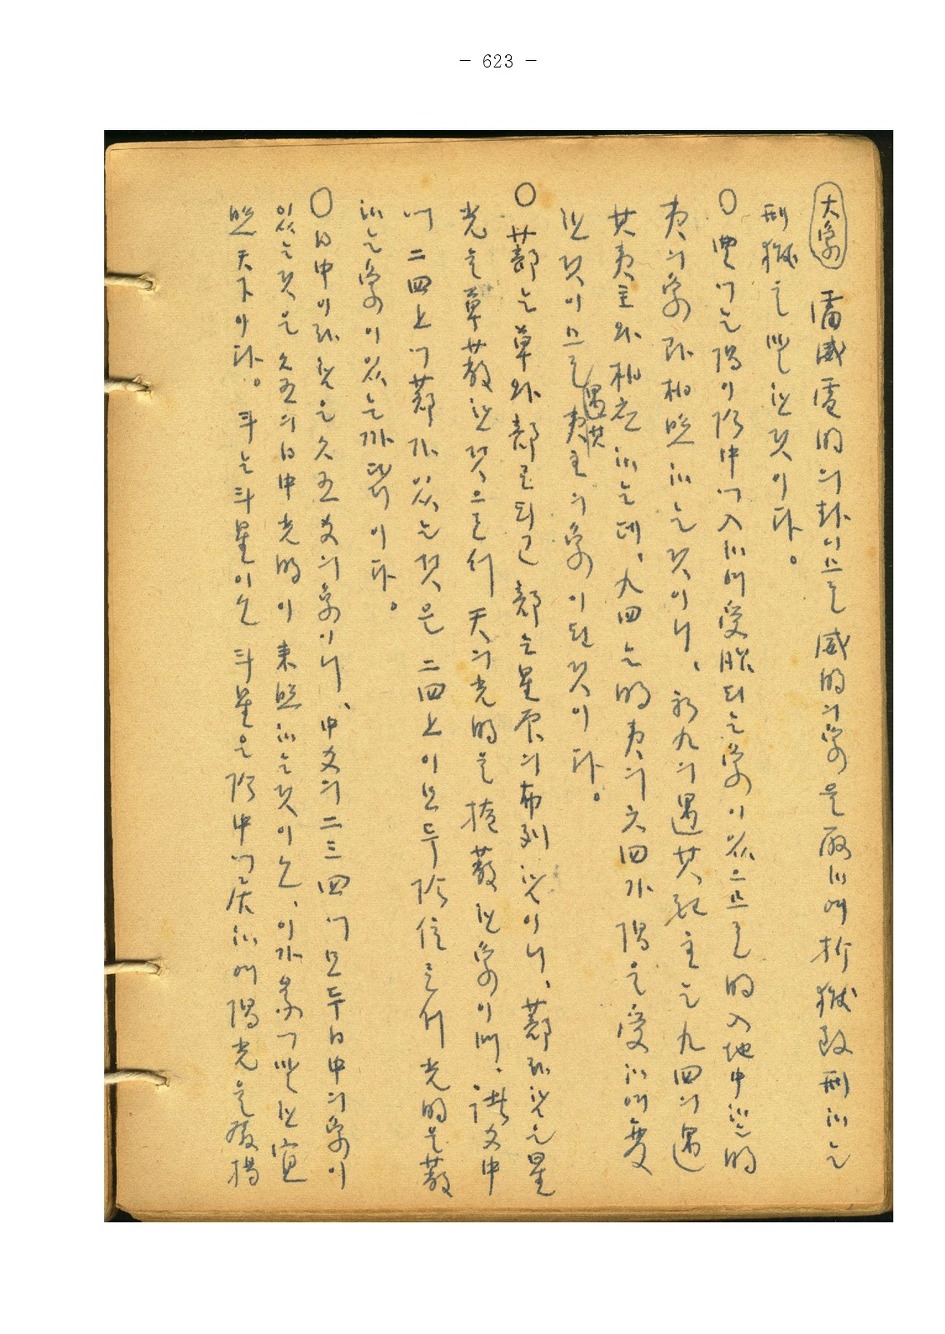 - 623 -
大象 電威震明의 卦이므로 威明의 象을 取하여 折獄致刑하는
刑獄을 말한 것이다。
○ 豊에는 陽이 陰中에 入하여 受胎되는 象이 있으므로 明入地中한 明
夷의 象과 相照하는 것이니、初九의 遇其配主는 九四의 遇
其夷主와 相應하는데、九四는 明夷의 六四가 陽을 受하여 變
한 것이므로 遇其夷主의 象이 된 것이다。
○ 蔀는 草와 部로 되고 部는 星辰의 布列한 것이니、蔀라 한 것은 星
光을 草蔽한 것으로서 天의 光明을 掩蔽한 象이며、詳 爻中
에 二四上에 蔀가 있는 것은 二四上이 모두 陰位로서 光明을 蔽
하는 象이 있는 까닭이다。
○ 日中이라 한 것은 六五爻의 象이니、中爻의 二三四에 모두 日中의 象이
있는 것은 六五의 日中光明이 來照하는 것이오、이가 象에 말한 宜
照天下이다。斗는 斗星이오 斗星은 陰中에 居하여 陽光을 發揚